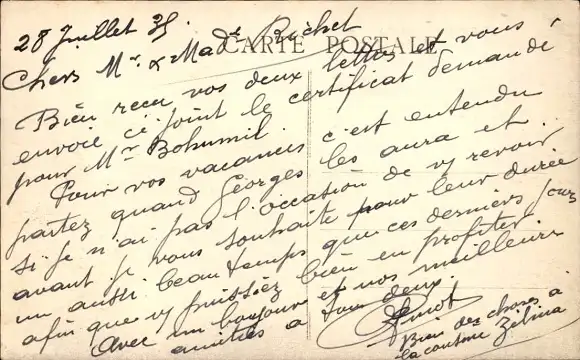 28 Juillet 35.
CARTE POSTALE
Chers Mr. & Made Richet
Bien reçu vos deux lettres et vous
envoie ci joint le certificat demandé
pour Mr Bohumil.
Pour vos vacances c'est entendu
partez quand Georges les aura et
si je n'ai pas l'occation de vs revoir
avant je vous souhaite pour leur durée
un aussi beau temps que ces derniers jours
afin que vs puissiez bien en profiter.
Avec un bonjour et nos meilleures
amitiés à tous deux.
Bien des choses à
la cousine Zélina